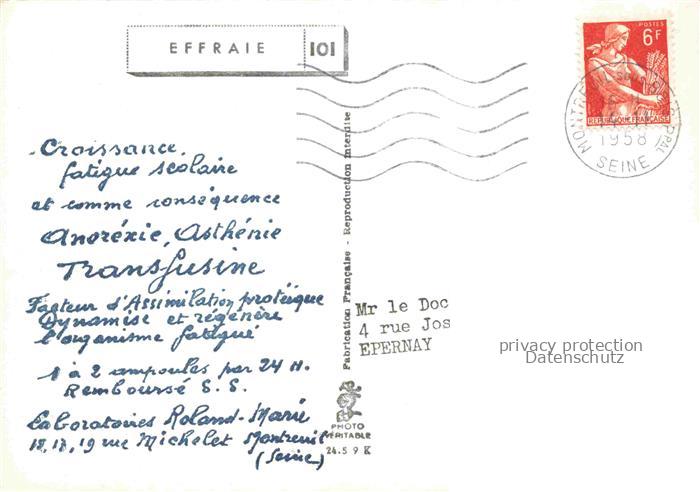 EFFRAIE 101
POSTES
6F
REPUBLIQUE FRANÇAISE
MONTREUIL-SOUS-BOIS PPAL
1958
SEINE
Croissance,
fatigue scolaire
et comme conséquence
Anoréxie, Asthénie
Transfusine
Facteur d'Assimilation protéique
Dynamise et régénère
l'organisme fatigué
1 à 2 ampoules par 24 H.
Remboursé S. S.
Laboratoires Roland-Marie
15, 17, 19 rue Michelet Montreuil
(Seine)
Fabrication Française - Reproduction interdite
PHOTO
VERITABLE
24.5 9 K
Mr le Doc
4 rue Jos
EPERNAY
privacy protection
Datenschutz